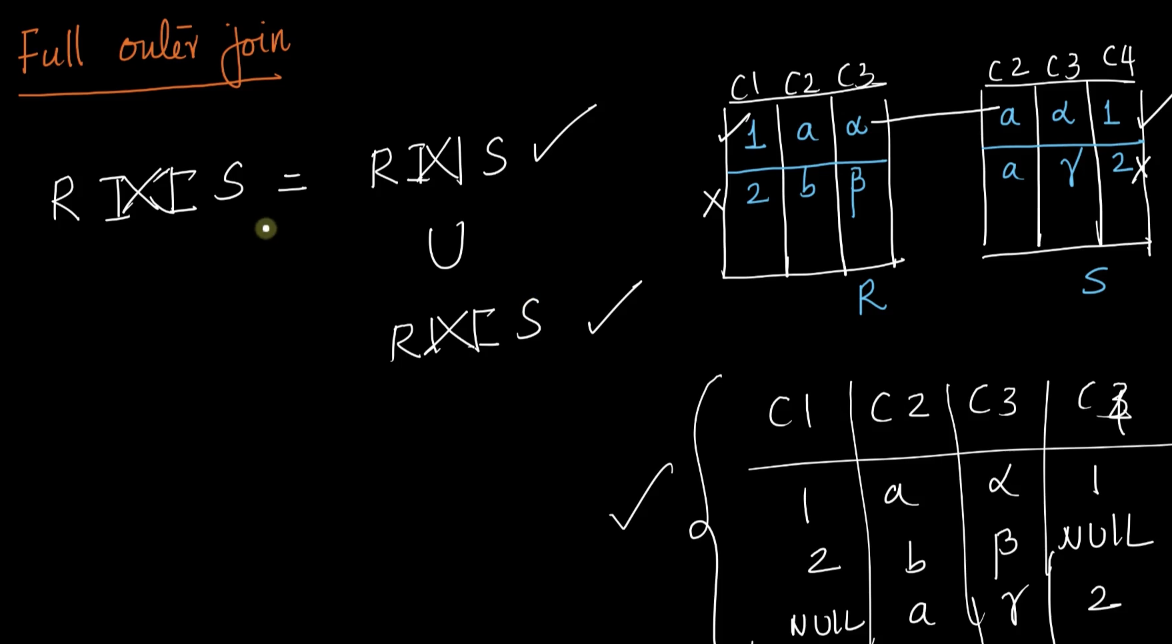 Full outer join
R ⟗ S = R ⟕ S
∪
R ⟖ S
C1 C2 C3
1 a α
2 b β
R
C2 C3 C4
a α 1
a γ 2
S
C1 C2 C3 C4
1 a α 1
2 b β NULL
NULL a γ 2